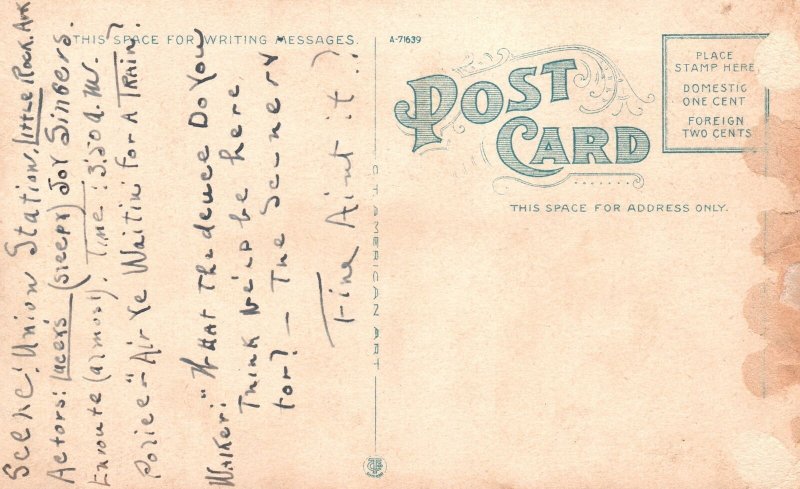 THIS SPACE FOR WRITING MESSAGES.
Scene: Union Station, Little Rock. Ark
Actors: (sleepy) Joy Singers.
Enroute (almost). Time: 3:50 A.M.
Police - "Air Ye Waitin' For A Train?
Walker: "What the deuce Do You
Think We'ed be here
for? - The Scenery -
Fine Aint it?
C.T. AMERICAN ART
A-71639
POST
CARD
PLACE
STAMP HERE
DOMESTIC
ONE CENT
FOREIGN
TWO CENTS
THIS SPACE FOR ADDRESS ONLY.